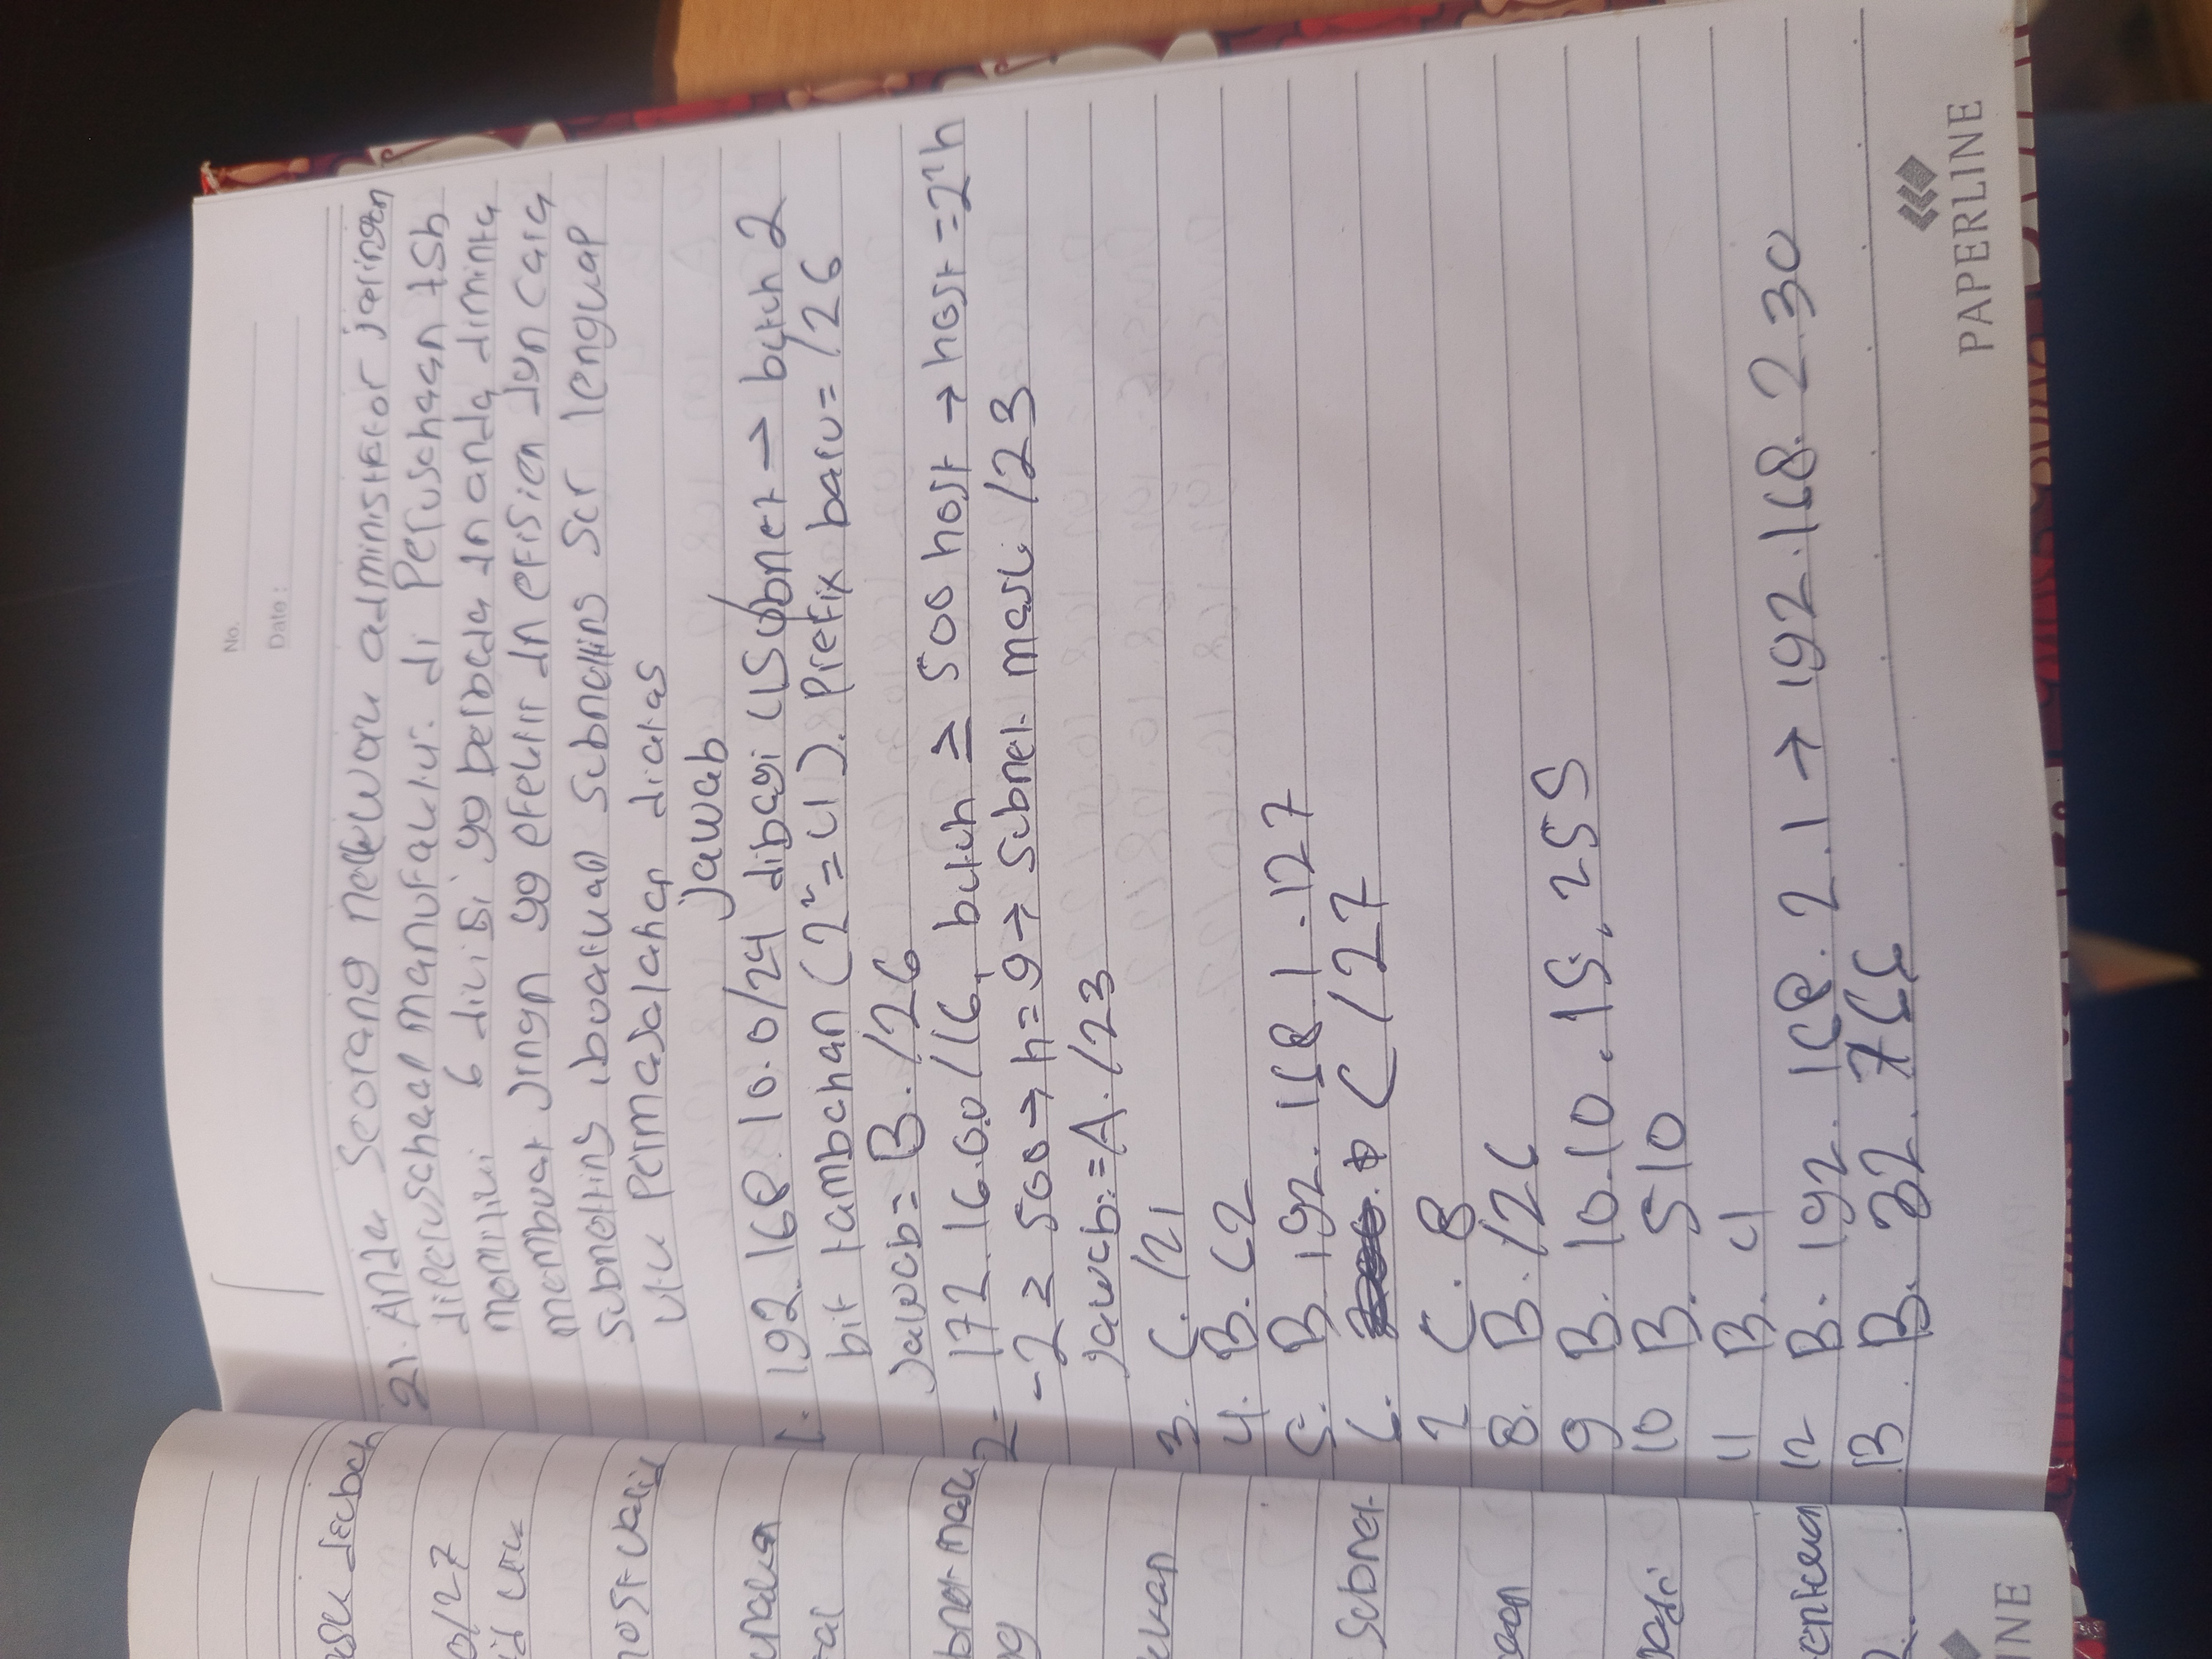 No.
Date :
asu sebah
21. Anda Seorang network administrator jaringan
diperuschaan manufaktur. di Peruschaan tsb
0/27
memiliki 6 divisi yg berbeda dn anda diminta
membuat Jringn yg efektif dn efisien dgn cara
subnetting, buatuah subnetting scr lengkap
host valid
utk Permasalahan diatas
Jawab
1. 192.168.10.0/24 dibagi 4 Subnet → butuh 2
bit tambahan (2²=4). Prefix baru= /26
Jawab= B. /26
bnet mask
2- 172.16.0.0/16, butuh ≥ 500 host → host =2^h
-2 ≥ 500 → h=9 → Subnet mask /23
Jawab:=A. /23
3. C. /21
4. B. 62
5. B. 192.168.1.127
Subnet
6. C /27
7 C. 8
8. B. /26
9 B. 10.10.15.255
10 B. 510
11 B. 4
12 B. 192.168.2.1 → 192.168.2.30
13 B. 32.766
PAPERLINE
INE